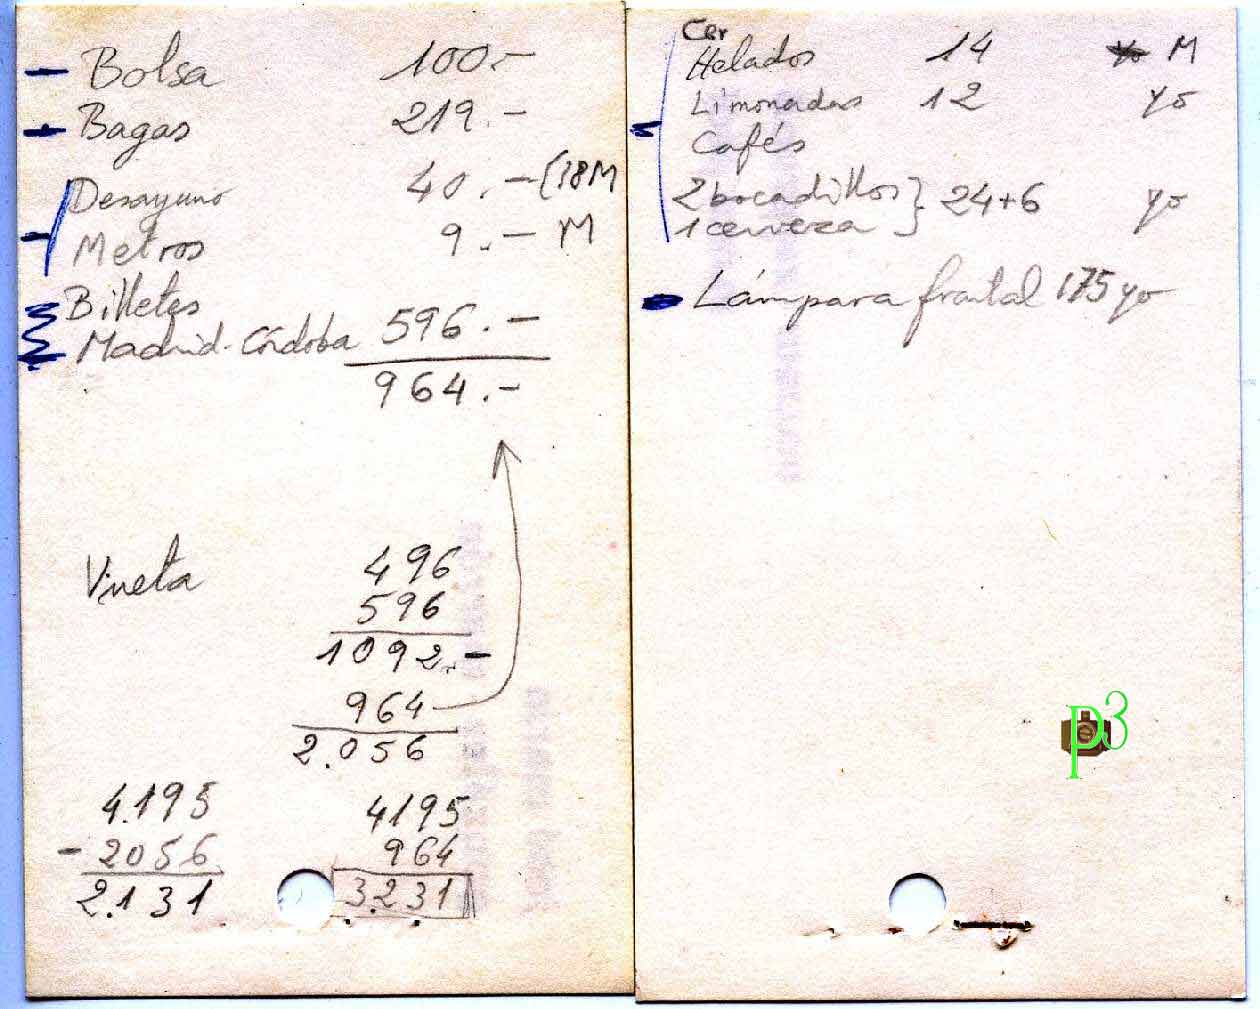 Bolsa 100.-
Bagas 219.-
Desayuno 40.- (38M
Metros 9.- M
Billetes
Madrid-Córdoba 596.-
964.-
Vineta 496
596
1092.-
964
2.056
4.195 4195
- 2056 964
2.131 3.231
Cer
Helados 14 M
Limonadas 12 yo
Cafés
2 bocadillos } 24+6 yo
1 cerveza
Lámpara frontal 175 yo
p3